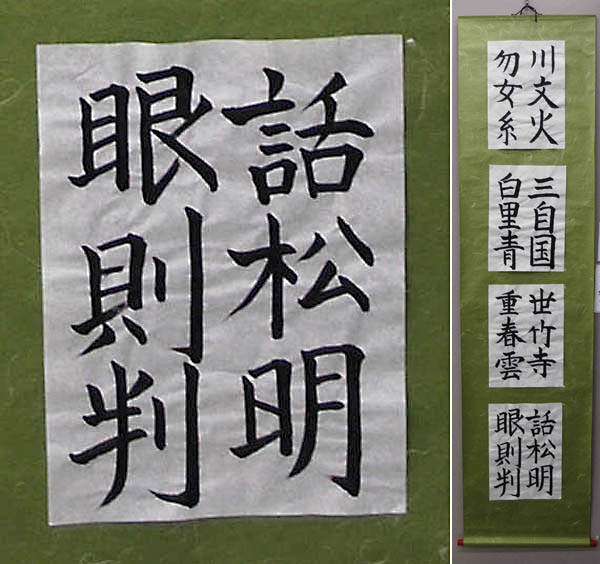 話松明
眼則判
川文火
勿女糸
三自国
白里青
世竹寺
重春雲
話松明
眼則判